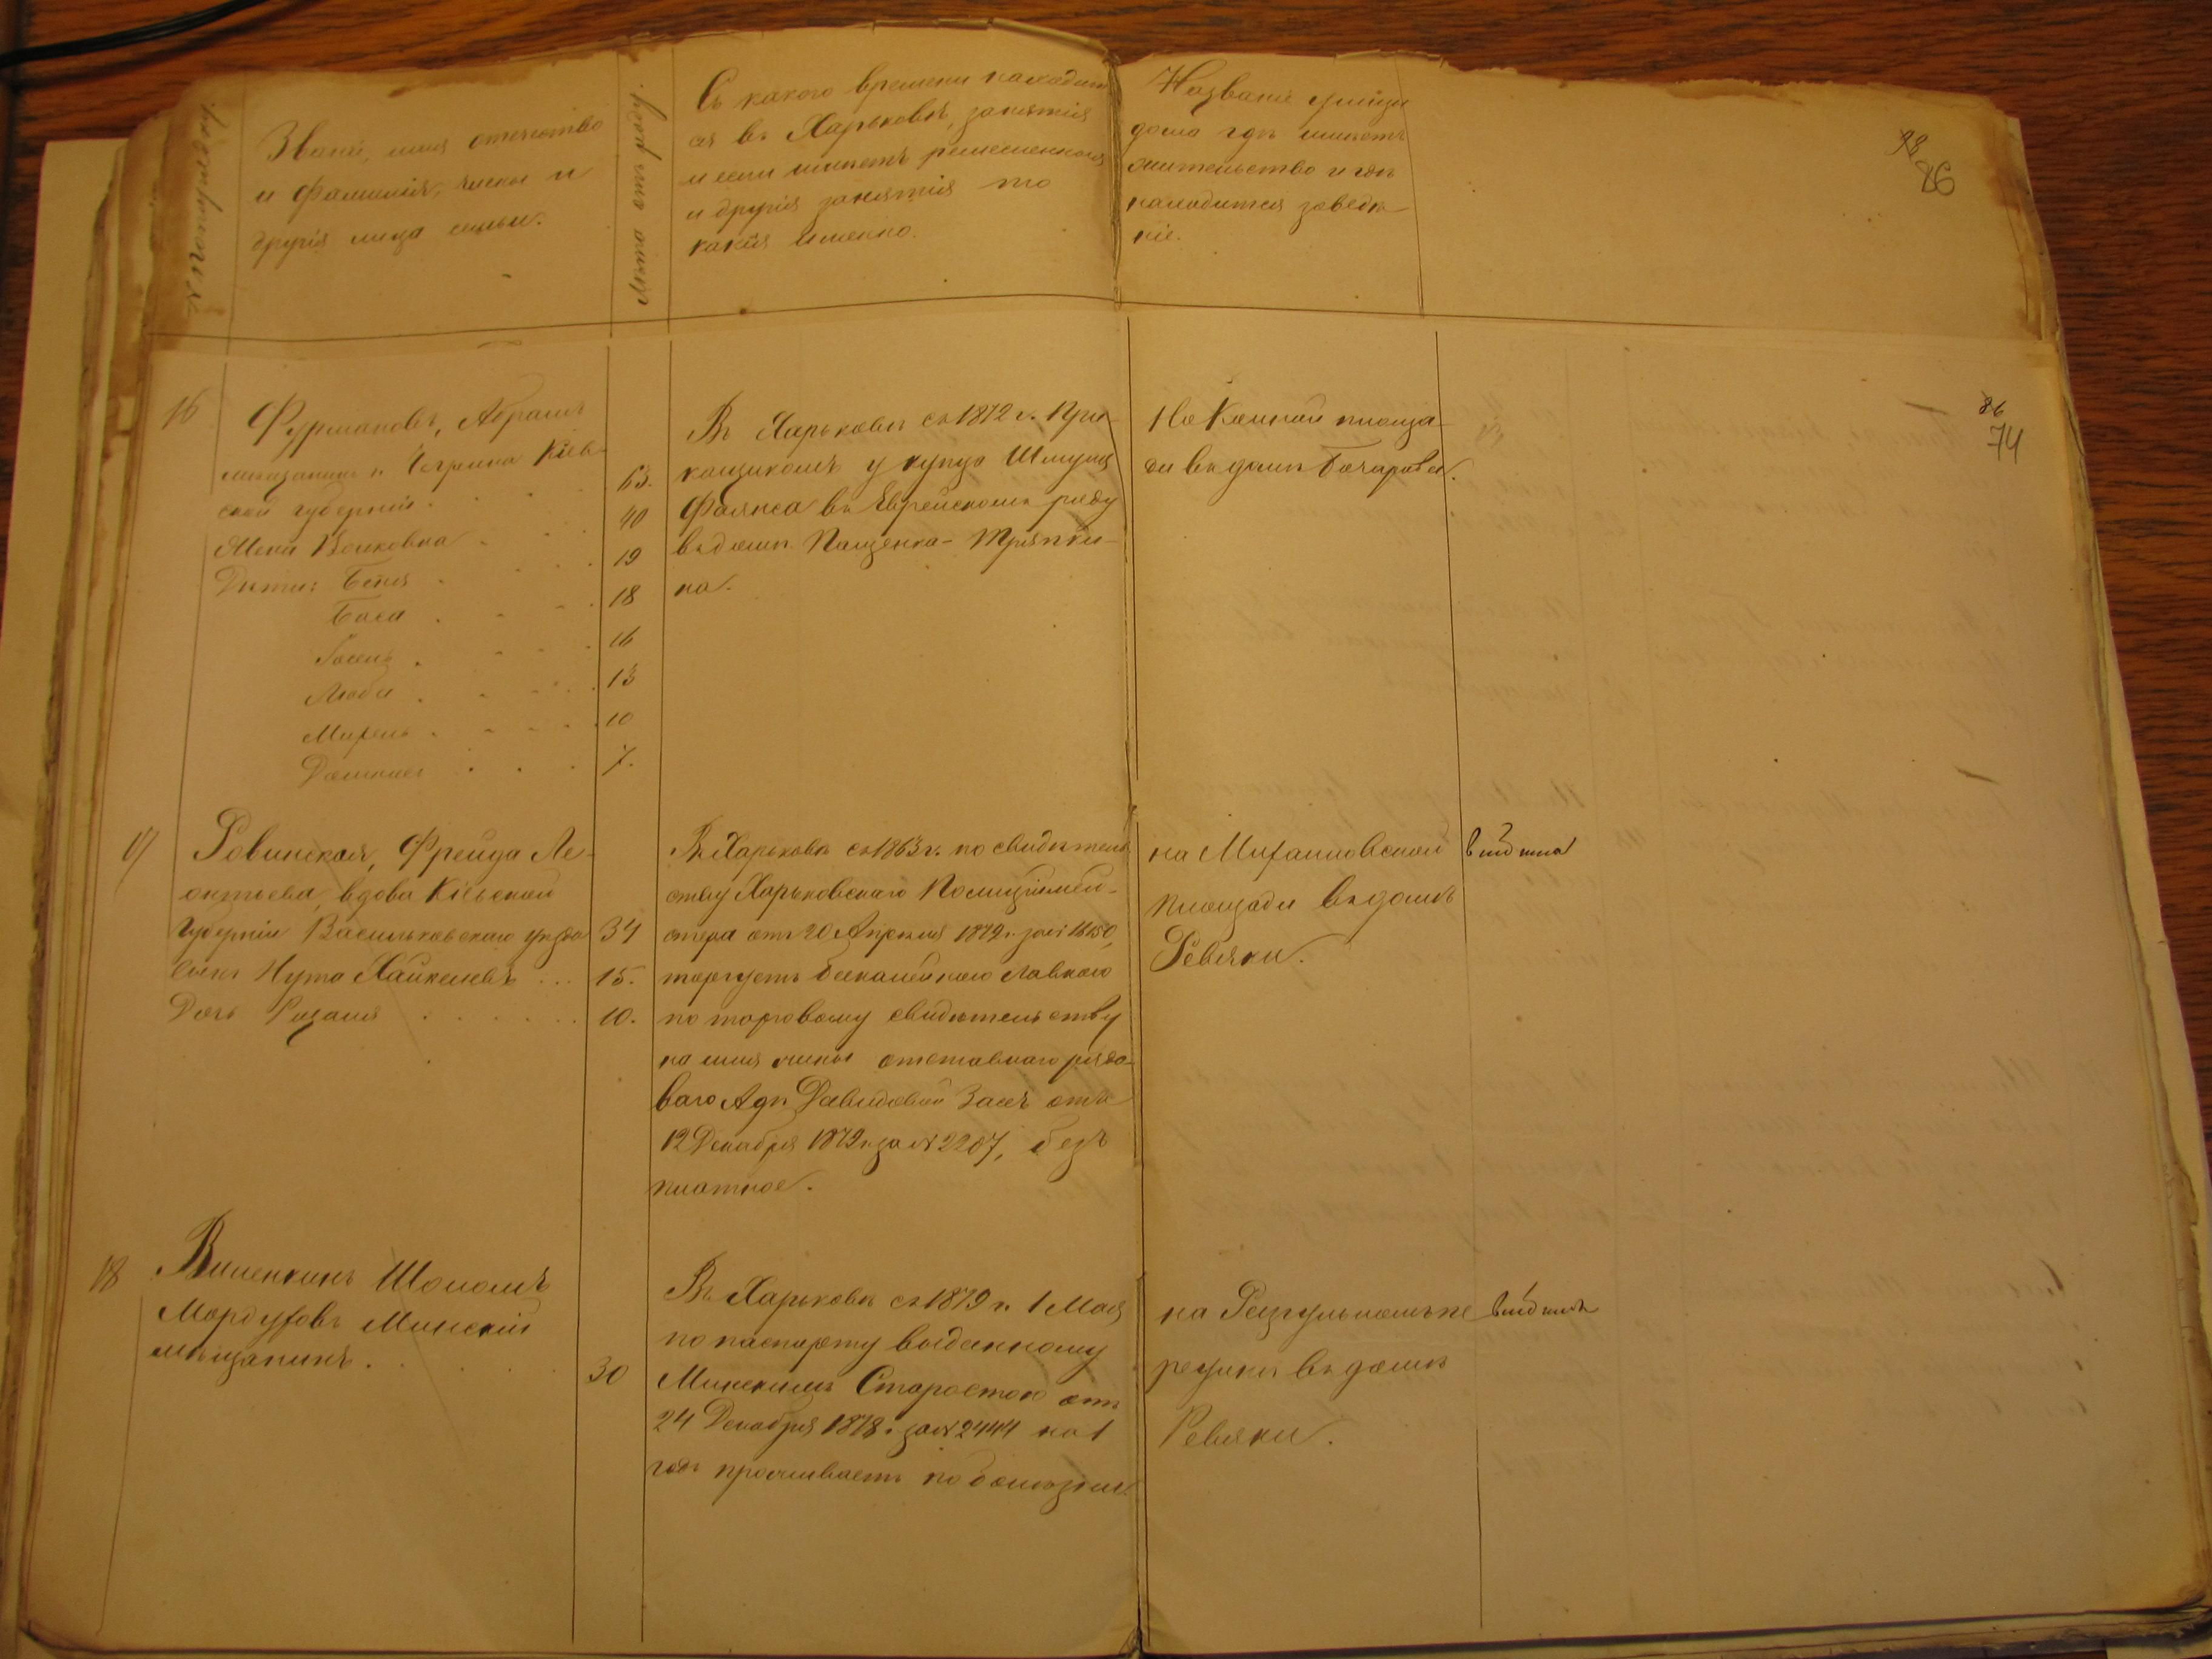 № по порядку.
Званіе, имя отчество
и фамилія, жены и
другія лица семьи.
Лѣта отъ роду.
Съ какого времени находит
ся въ Харьковѣ, занятія
и если имѣетъ ремесленныя
и другія занятія то
какія именно.
Названіе улицы
дома гдѣ имѣетъ
жительство и гдѣ
находится заведе-
ніе.
93
86
16
Фурмановъ, Абрамъ
мѣщанинъ г. Чегрина Кіев-
ской губерніи.
63.
Мена Волковна
40
Дѣти: Бейля
19
Бася
18
16
Люба
13
Мирель
10
7.
Въ Харьковѣ съ 1872 г. При-
кащикомъ у купца Шмуля
Фаянса въ Еврейскомъ ряду
въ домѣ Пащенка-Тряпки-
на.
На Конной площа-
ди въ домѣ Бочарова.
86
74
17
Ровинская, Фрейда Ле-
онтьева, вдова Кіевской
Губерніи Васильковскаго уѣзда
34
сынъ Нута Хайкелевъ
15.
Дочь Рузалія
10.
Въ Харьковѣ съ 1863 г. по свидѣтель
ству Харьковскаго Полиціймей-
стера отъ 20 Апрѣля 1879 г. за № 16150,
торгуетъ бакалейною лавкою
по торговому свидѣтельству
на имя жены отставнаго рядо-
ваго Адѣ Давидовой Засъ отъ
12 Декабря 1879 г. за № 2207, без
платное.
на Михайловской
площади въ домѣ
Ревяки.
18
Виленкинъ Шоломъ
Мордуховъ Минскій
мѣщанинъ.
30
Въ Харьковѣ съ 1879 г. 1 Мая
по паспорту выданному
Минскимъ Старостою отъ
24 Декабря 1878 г. за № 2444 на 1
годъ проживаетъ по болѣзни.
въ домѣ
Ревяки.